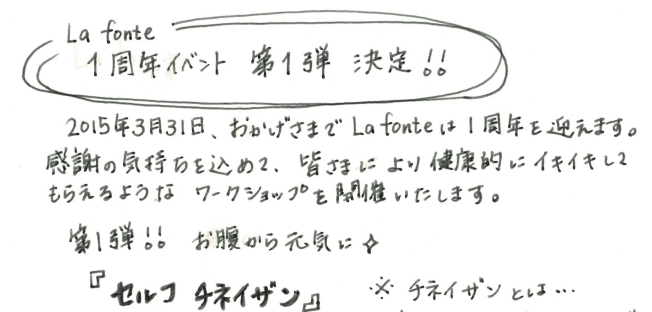 La fonte
1周年イベント 第1弾 決定!!
2015年3月31日、おかげさまで La fonteは1周年を迎えます。
感謝の気持ちを込めて、皆さまにより健康的にイキイキして
もらえるような ワークショップを開催いたします。
第1弾!! お腹から元気に✧
『セルフ チネイザン』 ※ チネイザンとは…